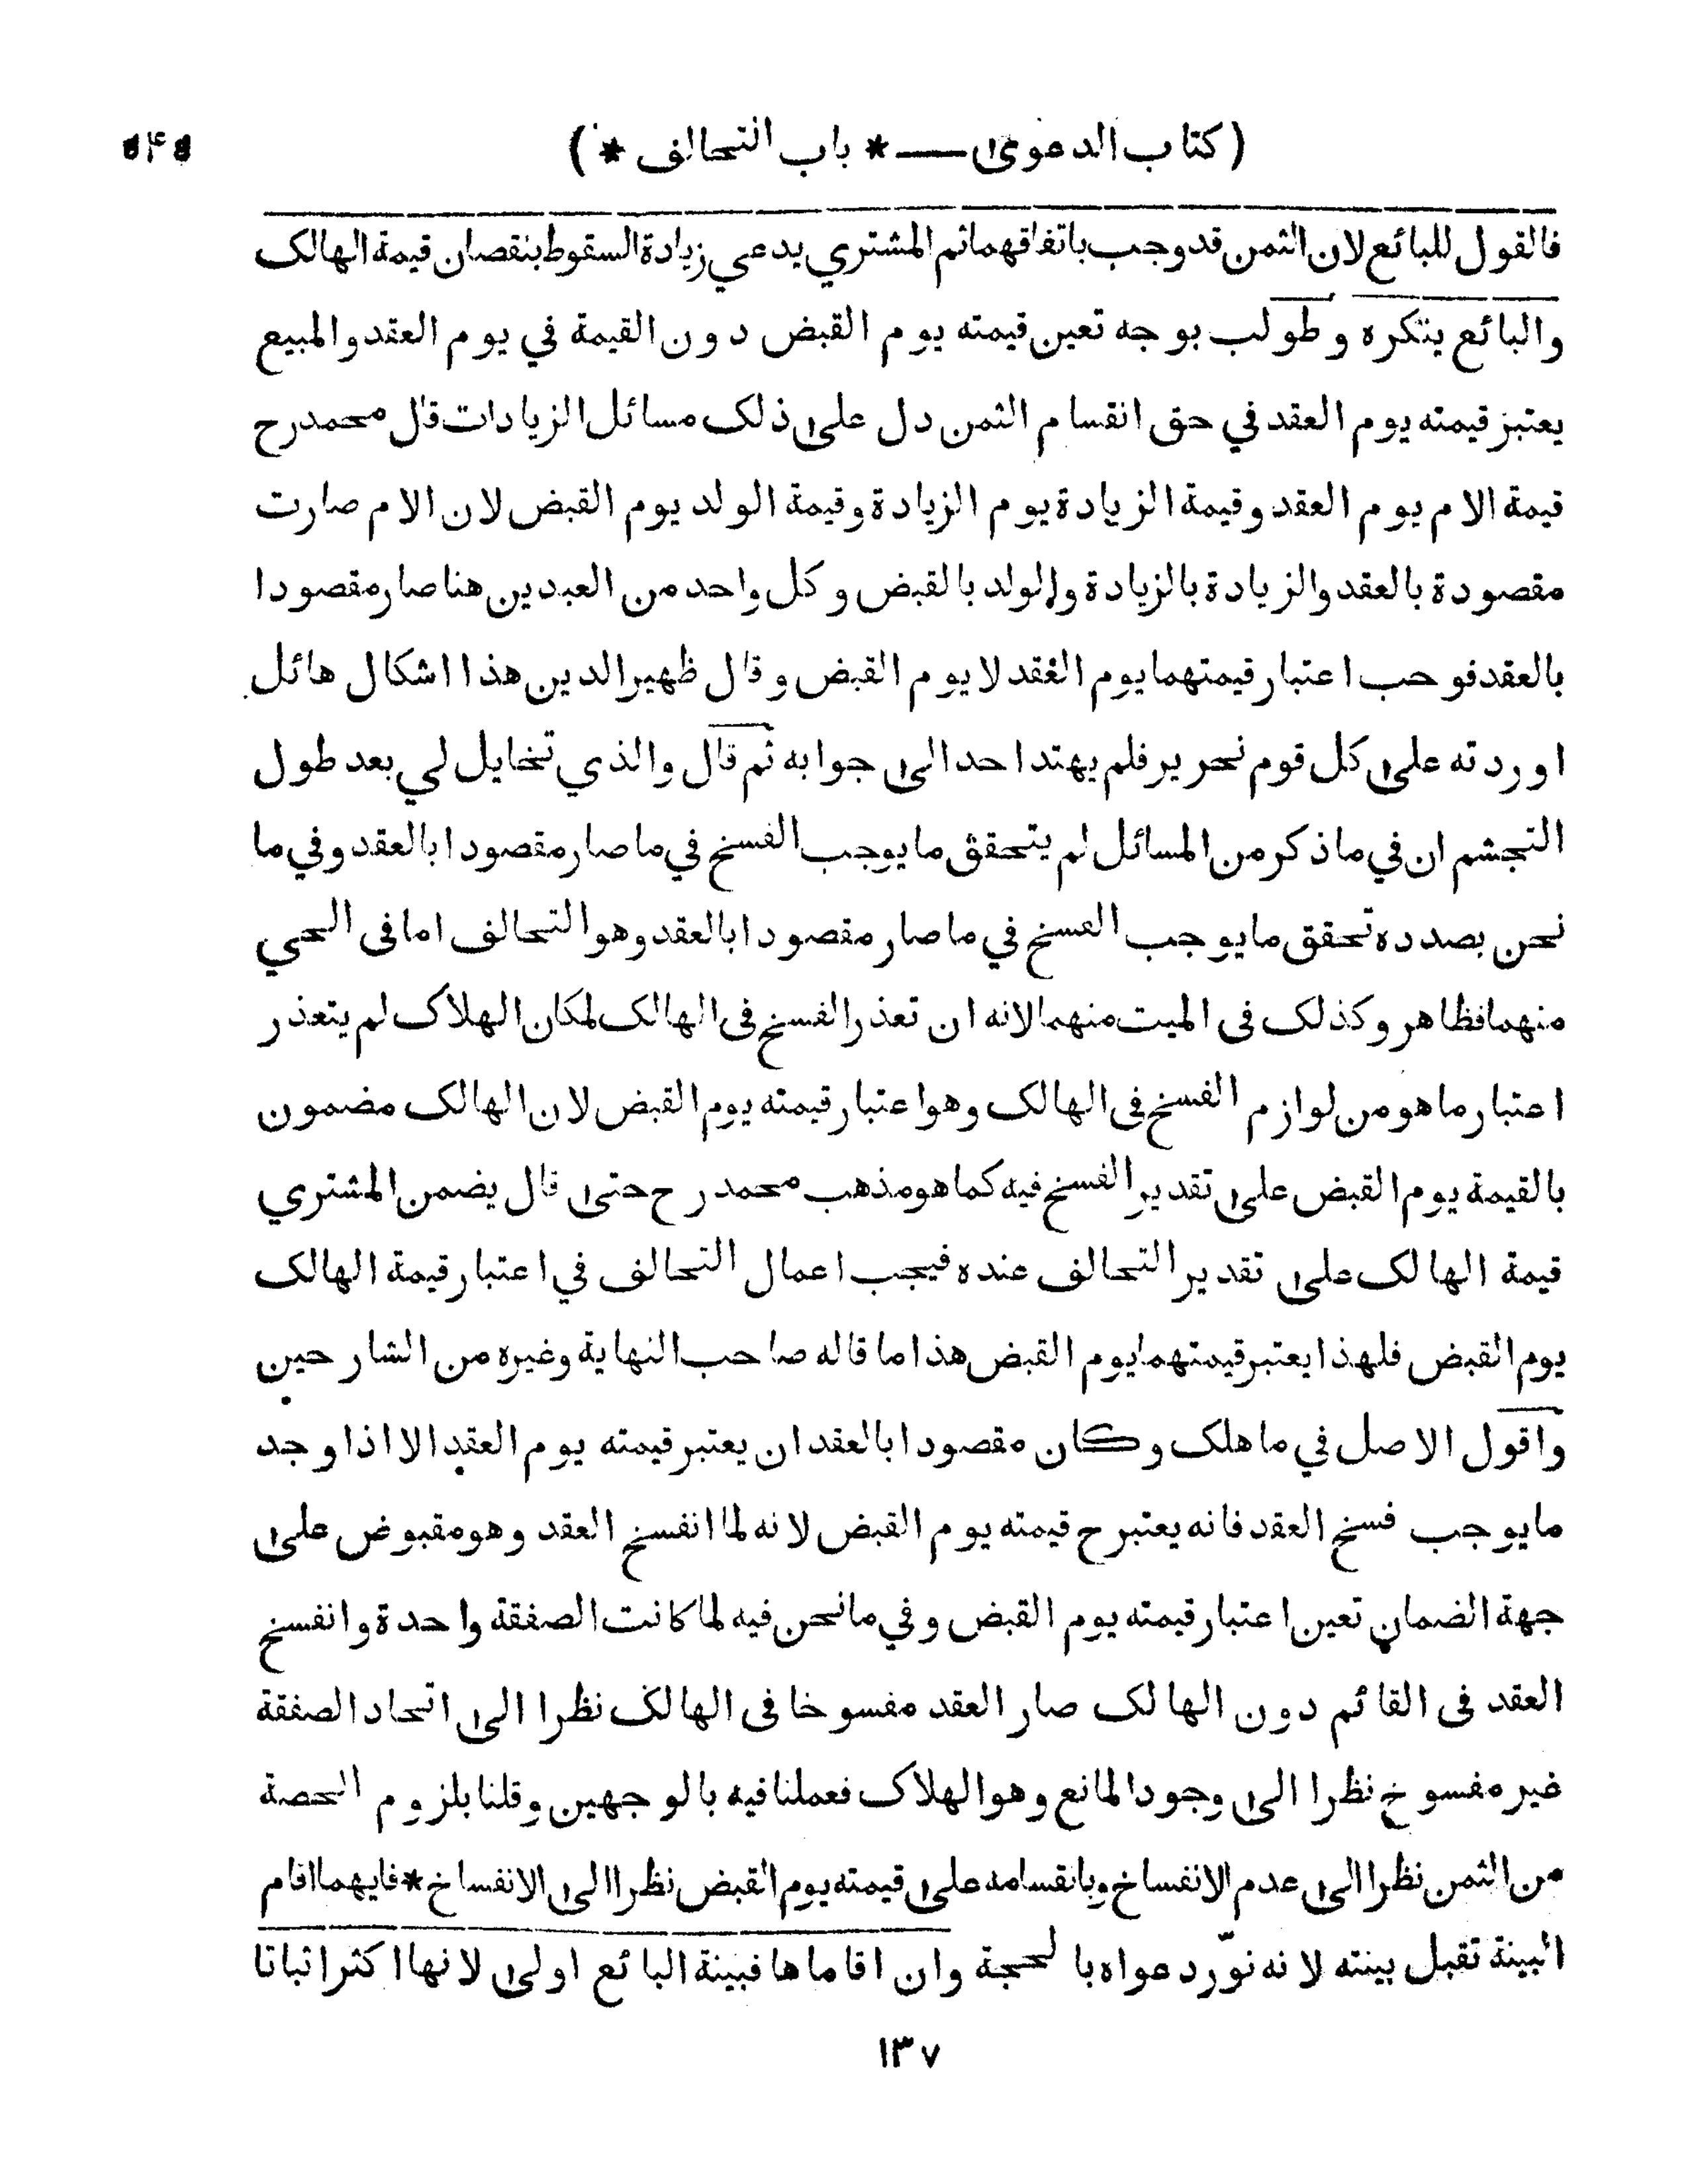 (كتاب الدعوى — * باب التحالف *)
٥٤٥
فالقول للبائع لان الثمن قد وجب باتفاقهما ثم المشتري يدعي زيادة السقوط بنقصان قيمة الهالك
والبائع ينكره وطولب بوجه تعين قيمته يوم القبض دون القيمة في يوم العقد والمبيع
يعتبر قيمته يوم العقد في حق انقسام الثمن دل على ذلك مسائل الزيادات قال محمد رح
قيمة الام يوم العقد وقيمة الزيادة يوم الزيادة وقيمة الولد يوم القبض لان الام صارت
مقصودة بالعقد والزيادة بالزيادة والولد بالقبض وكل واحد من العبدين هنا صار مقصودا
بالعقد فوجب اعتبار قيمتهما يوم العقد لا يوم القبض وقال ظهير الدين هذا اشكال هائل
اوردته على كل قوم نحرير فلم يهتد احد الى جوابه ثم قال والذي تخايل لي بعد طول
التجشم ان في ما ذكر من المسائل لم يتحقق ما يوجب الفسخ في ما صار مقصودا بالعقد وفي ما
نحن بصدده تحقق ما يوجب الفسخ في ما صار مقصودا بالعقد وهو التحالف اما في الحي
منهما فظاهر وكذلك في الميت منهما لانه ان تعذر الفسخ في الهالك لمكان الهلاك لم يتعذر
اعتبار ما هو من لوازم الفسخ في الهالك وهو اعتبار قيمته يوم القبض لان الهالك مضمون
بالقيمة يوم القبض على تقدير الفسخ فيه كما هو مذهب محمد رح حتى قال يضمن المشتري
قيمة الهالك على تقدير التحالف عنده فيجب اعمال التحالف في اعتبار قيمة الهالك
يوم القبض فلهذا يعتبر قيمتهما يوم القبض هذا ما قاله صاحب النهاية وغيره من الشارحين
واقول الاصل في ما هلك وكان مقصودا بالعقد ان يعتبر قيمته يوم العقد الا اذا وجد
ما يوجب فسخ العقد فانه يعتبر ح قيمته يوم القبض لانه لما انفسخ العقد وهو مقبوض على
جهة الضمان تعين اعتبار قيمته يوم القبض وفي ما نحن فيه لما كانت الصفقة واحدة وانفسخ
العقد في القائم دون الهالك صار العقد مفسوخا في الهالك نظرا الى اتحاد الصفقة
غير مفسوخ نظرا الى وجود المانع وهو الهلاك فعملنا فيه بالوجهين وقلنا بلزوم الحصة
من الثمن نظرا الى عدم الانفساخ وبانقسامه على قيمته يوم القبض نظرا الى الانفساخ * فايهما اقام
البينة تقبل بينته لانه نوّر دعواه بالحجة وان اقاماها فبينة البائع اولى لانها اكثر اثباتا
١٣٧